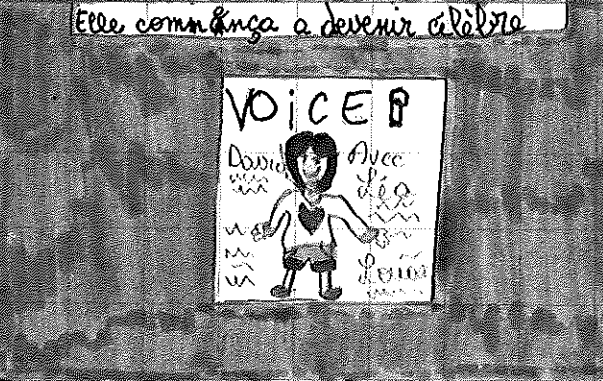 Elle commança a devenir célèbre
VOiCE
David Avec
Léa
Louis